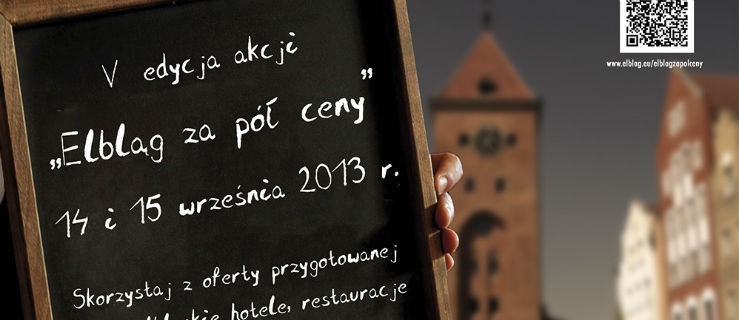 www.elblag.eu/elblagzapolceny
V edycja akcji
„Elbląg za pół ceny”
14 i 15 września 2013 r.
Skorzystaj z oferty przygotowanej
hotele, restauracje